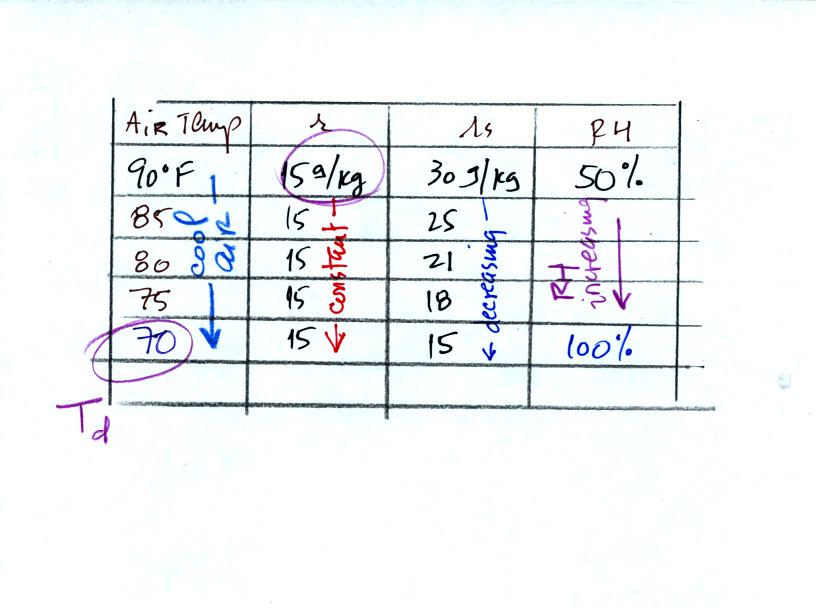 AiR Temp r rs RH
90°F 15 g/kg 30 g/kg 50%
85 15 25
80 15 21
75 15 18
70 15 15 100%
cool
air
constant
decreasing
RH
increasing
Td